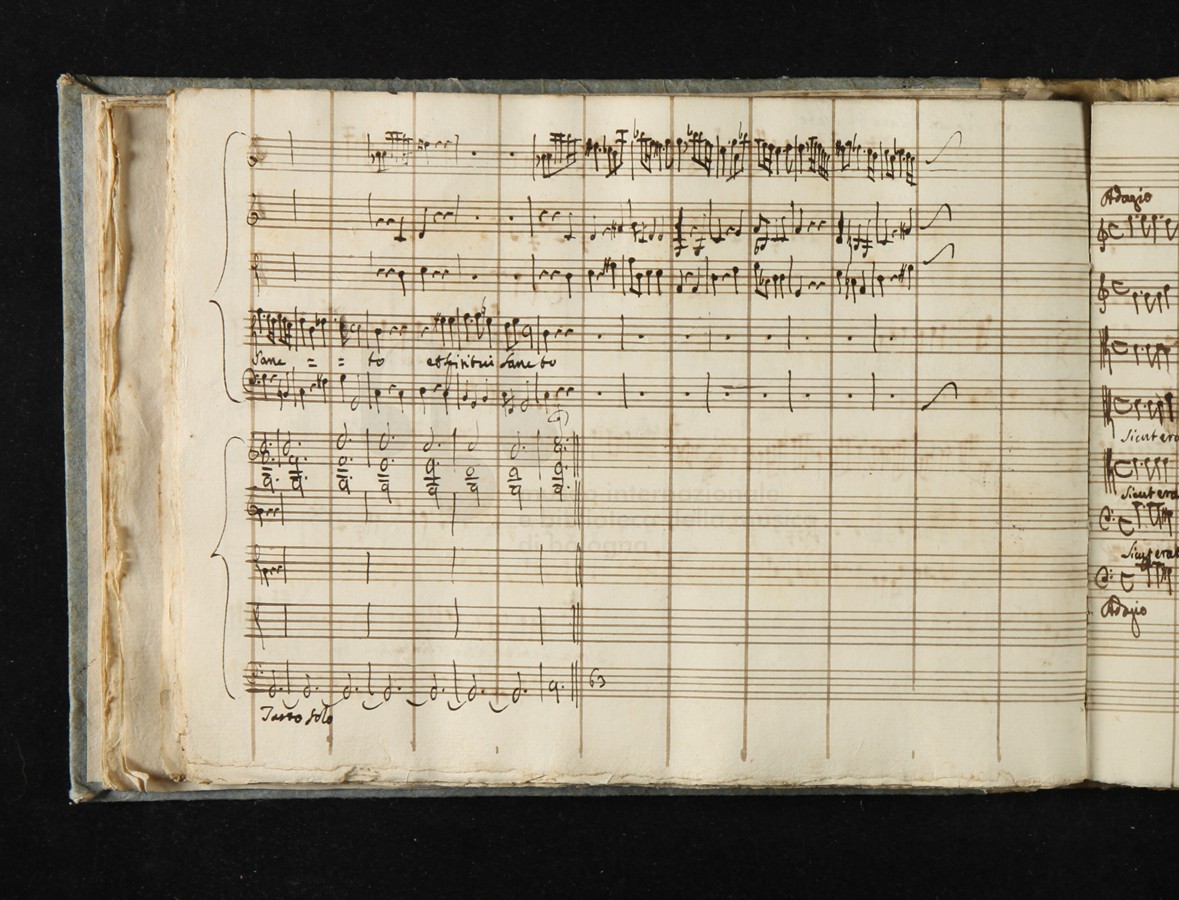 Sanc = = to et spiritui Sancto
Tasto Solo
63
Adagio
Sicut era
Sicut era
Sicut erat
Adagio
internazionale
e biblioteca della musica
di bologna